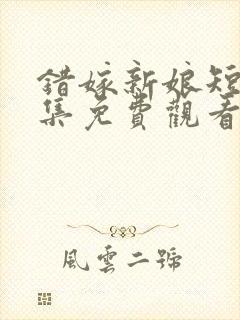 錯嫁新娘短
集免費觀看
風雲二號